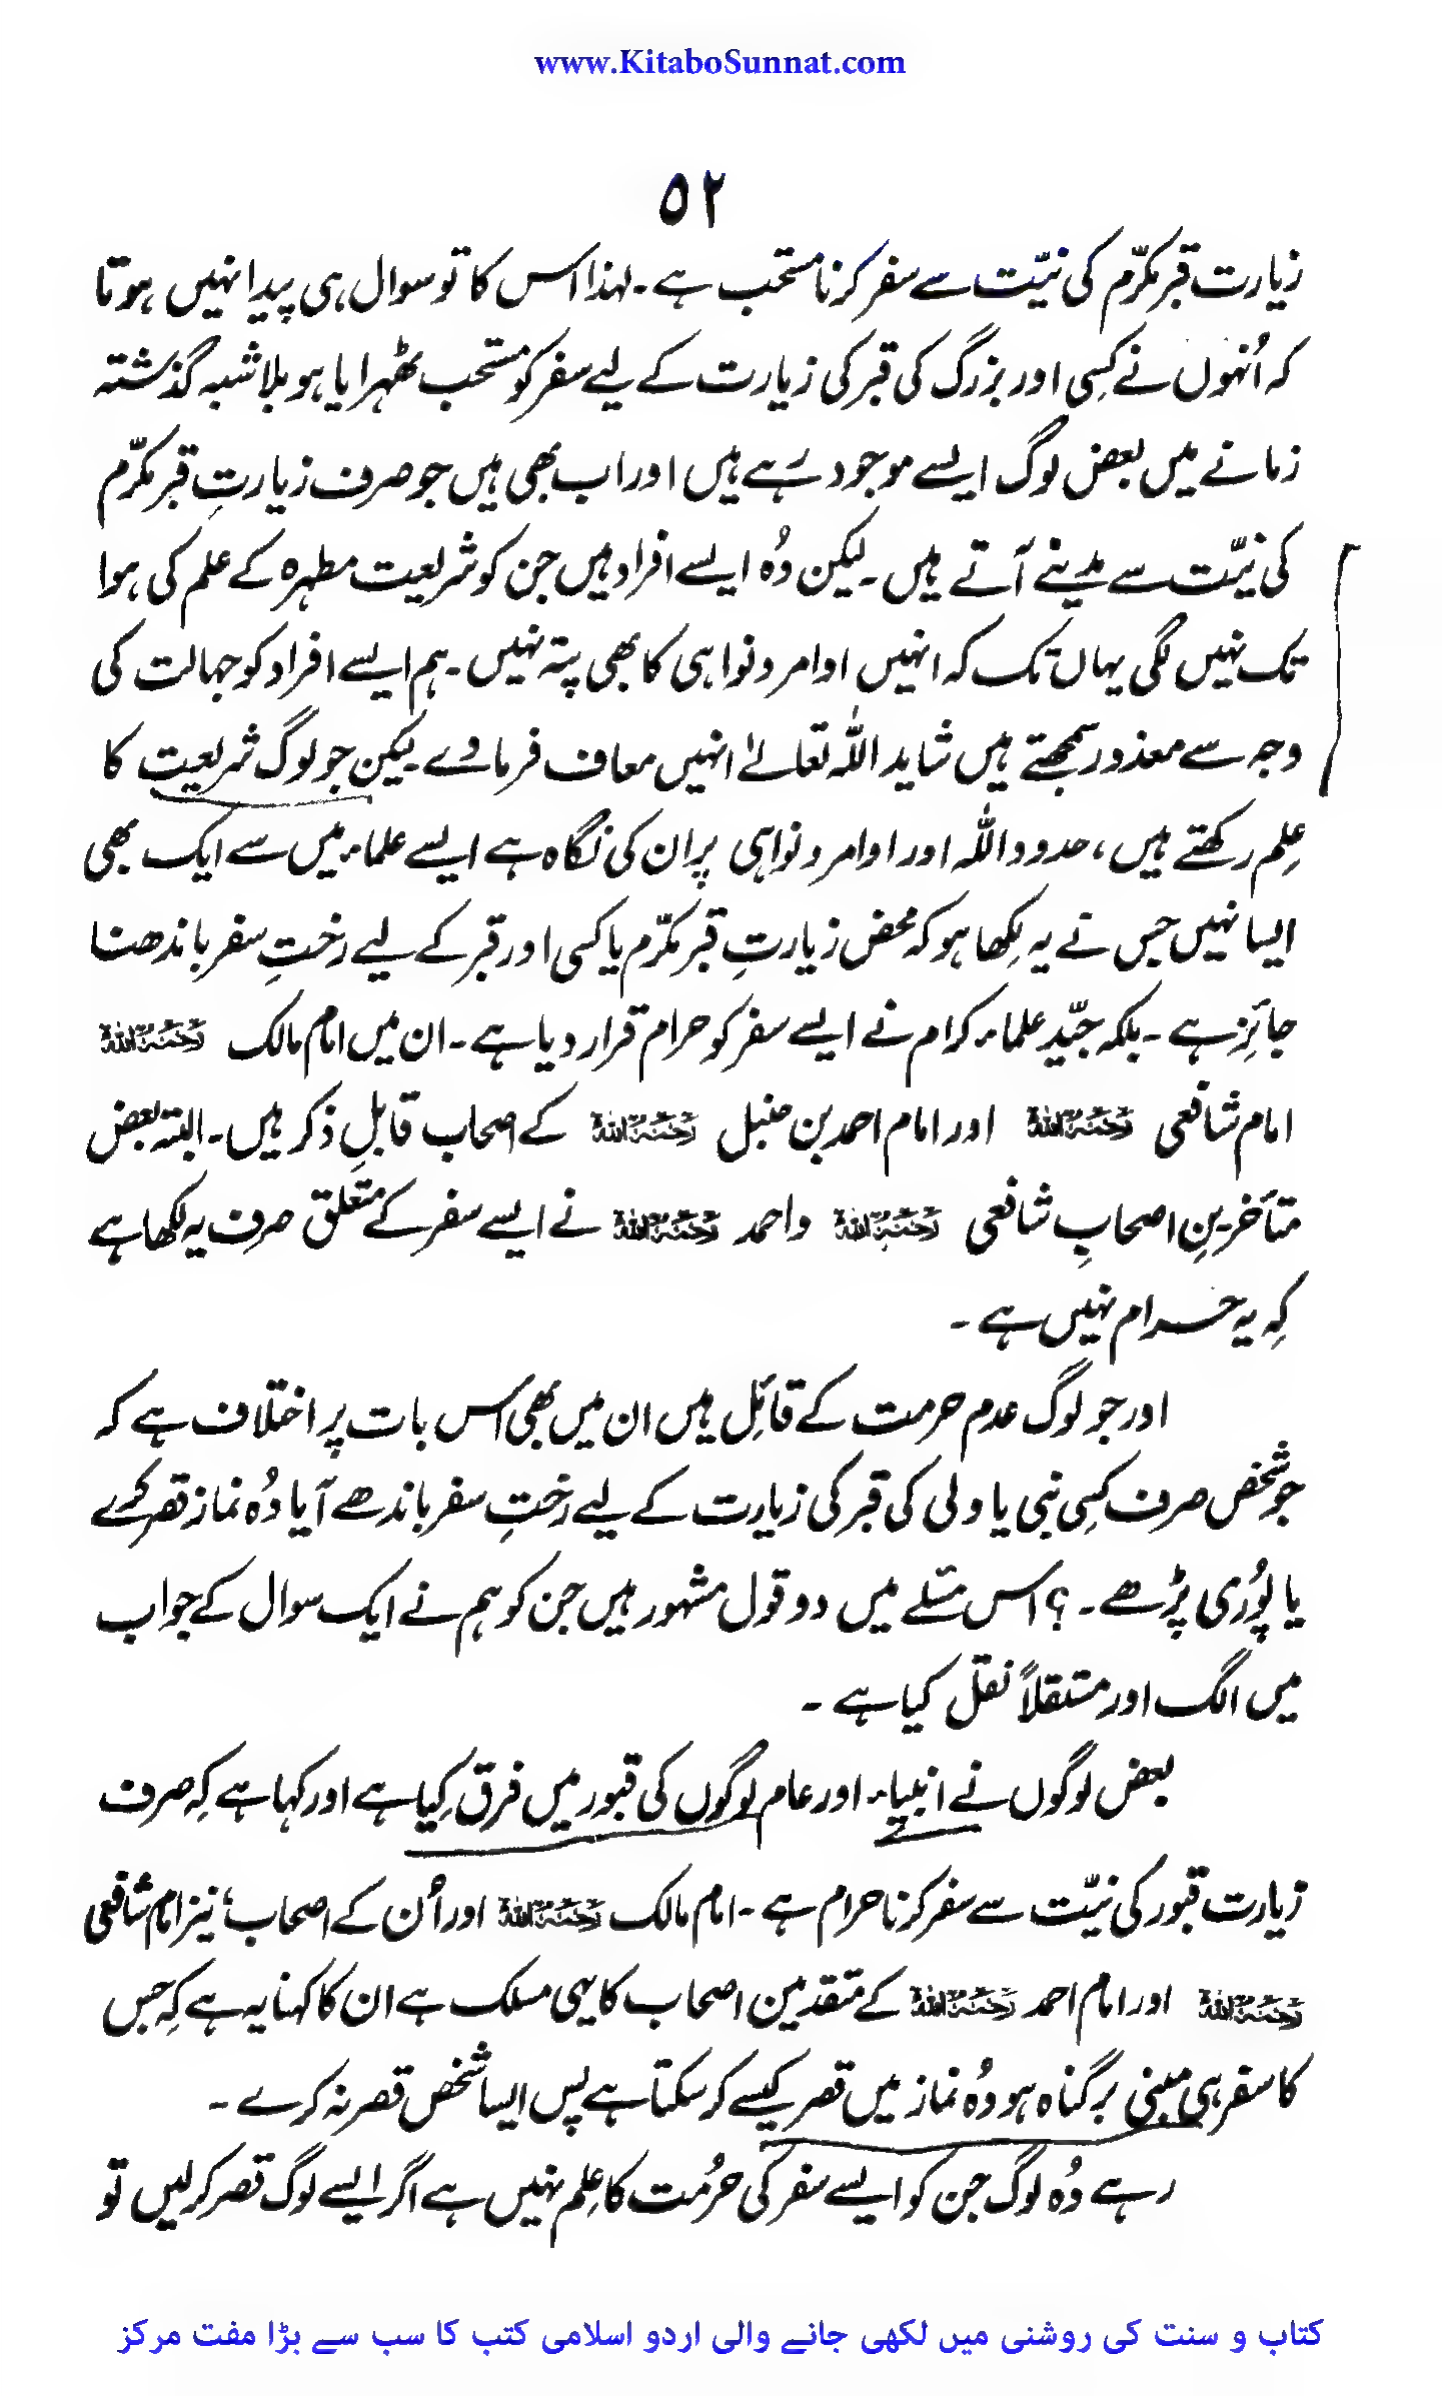 www.KitaboSunnat.com
۵۲
زیارت قبر مکرّم کی نیّت سے سفر کرنا مستحب ہے۔ لہٰذا اس کا تو سوال ہی پیدا نہیں ہوتا
کہ اُنہوں نے کِسی اور بزرگ کی قبر کی زیارت کے لیے سفر کو مستحب ٹھہرایا ہو بلاشبہ گذشتہ
زمانے میں بعض لوگ ایسے موجود رہے ہیں اور اب بھی ہیں جو صرف زیارتِ قبر مکرّم
کی نیّت سے مدینے آتے ہیں۔ لیکن وُہ ایسے افراد ہیں جن کو شریعت مطہرہ کے علم کی ہوا
تک نہیں لگی یہاں تک کہ انہیں اوامر و نواہی کا بھی پتہ نہیں۔ ہم ایسے افراد کو جہالت کی
وجہ سے معذور سمجھتے ہیں شاید اللہ تعالےٰ انہیں معاف فرما دے لیکن جو لوگ شریعت کا
عِلم رکھتے ہیں، حدود اللہ اور اوامر و نواہی پر ان کی نگاہ ہے ایسے علماء میں سے ایک بھی
ایسا نہیں جس نے یہ لِکھا ہو کہ محض زیارتِ قبر مکرّم یا کسی اور قبر کے لیے رختِ سفر باندھنا
جائز ہے۔ بلکہ جیّد علماء کرام نے ایسے سفر کو حرام قرار دیا ہے۔ ان میں امام مالک رحمۃ اللہ
امام شافعی رحمۃ اللہ اور امام احمد بن حنبل رحمۃ اللہ کے اصحاب قابلِ ذکر ہیں۔ البتہ بعض
متأخرینِ اصحابِ شافعی رحمۃ اللہ واحمد رحمۃ اللہ نے ایسے سفر کے متعلق صرف یہ لکھا ہے
کِہ یہ حرام نہیں ہے۔
اور جو لوگ عدم حرمت کے قائل ہیں ان میں بھی اس بات پر اختلاف ہے کہ
جو شخص صرف کسِی نبی یا ولی کی قبر کی زیارت کے لیے رختِ سفر باندھے آیا وُہ نماز قصر کرے
یا پُوری پڑھے۔؟ اس مسئلے میں دو قول مشہور ہیں جن کو ہم نے ایک سوال کے جواب
میں الگ اور مستقلاً نقل کیا ہے۔
بعض لوگوں نے انبیاء اور عام لوگوں کی قبور میں فرق کِیا ہے اور کہا ہے کِہ صرف
زیارت قبور کی نیّت سے سفر کرنا حرام ہے۔ امام مالک رحمۃ اللہ اور اُن کے اصحاب، نیز امام شافعی
رحمۃ اللہ اور امام احمد رحمۃ اللہ کے متقدمین اصحاب کا یہی مسلک ہے ان کا کہنا یہ ہے کِہ جس
کا سفر ہی مبنی بر گناہ ہو وُہ نماز میں قصر کیسے کر سکتا ہے پس ایسا شخص قصر نہ کرے۔
رہے وُہ لوگ جن کو ایسے سفر کی حُرمت کا عِلم نہیں ہے اگر ایسے لوگ قصر کر لیں تو
کتاب و سنت کی روشنی میں لکھی جانے والی اردو اسلامی کتب کا سب سے بڑا مفت مرکز